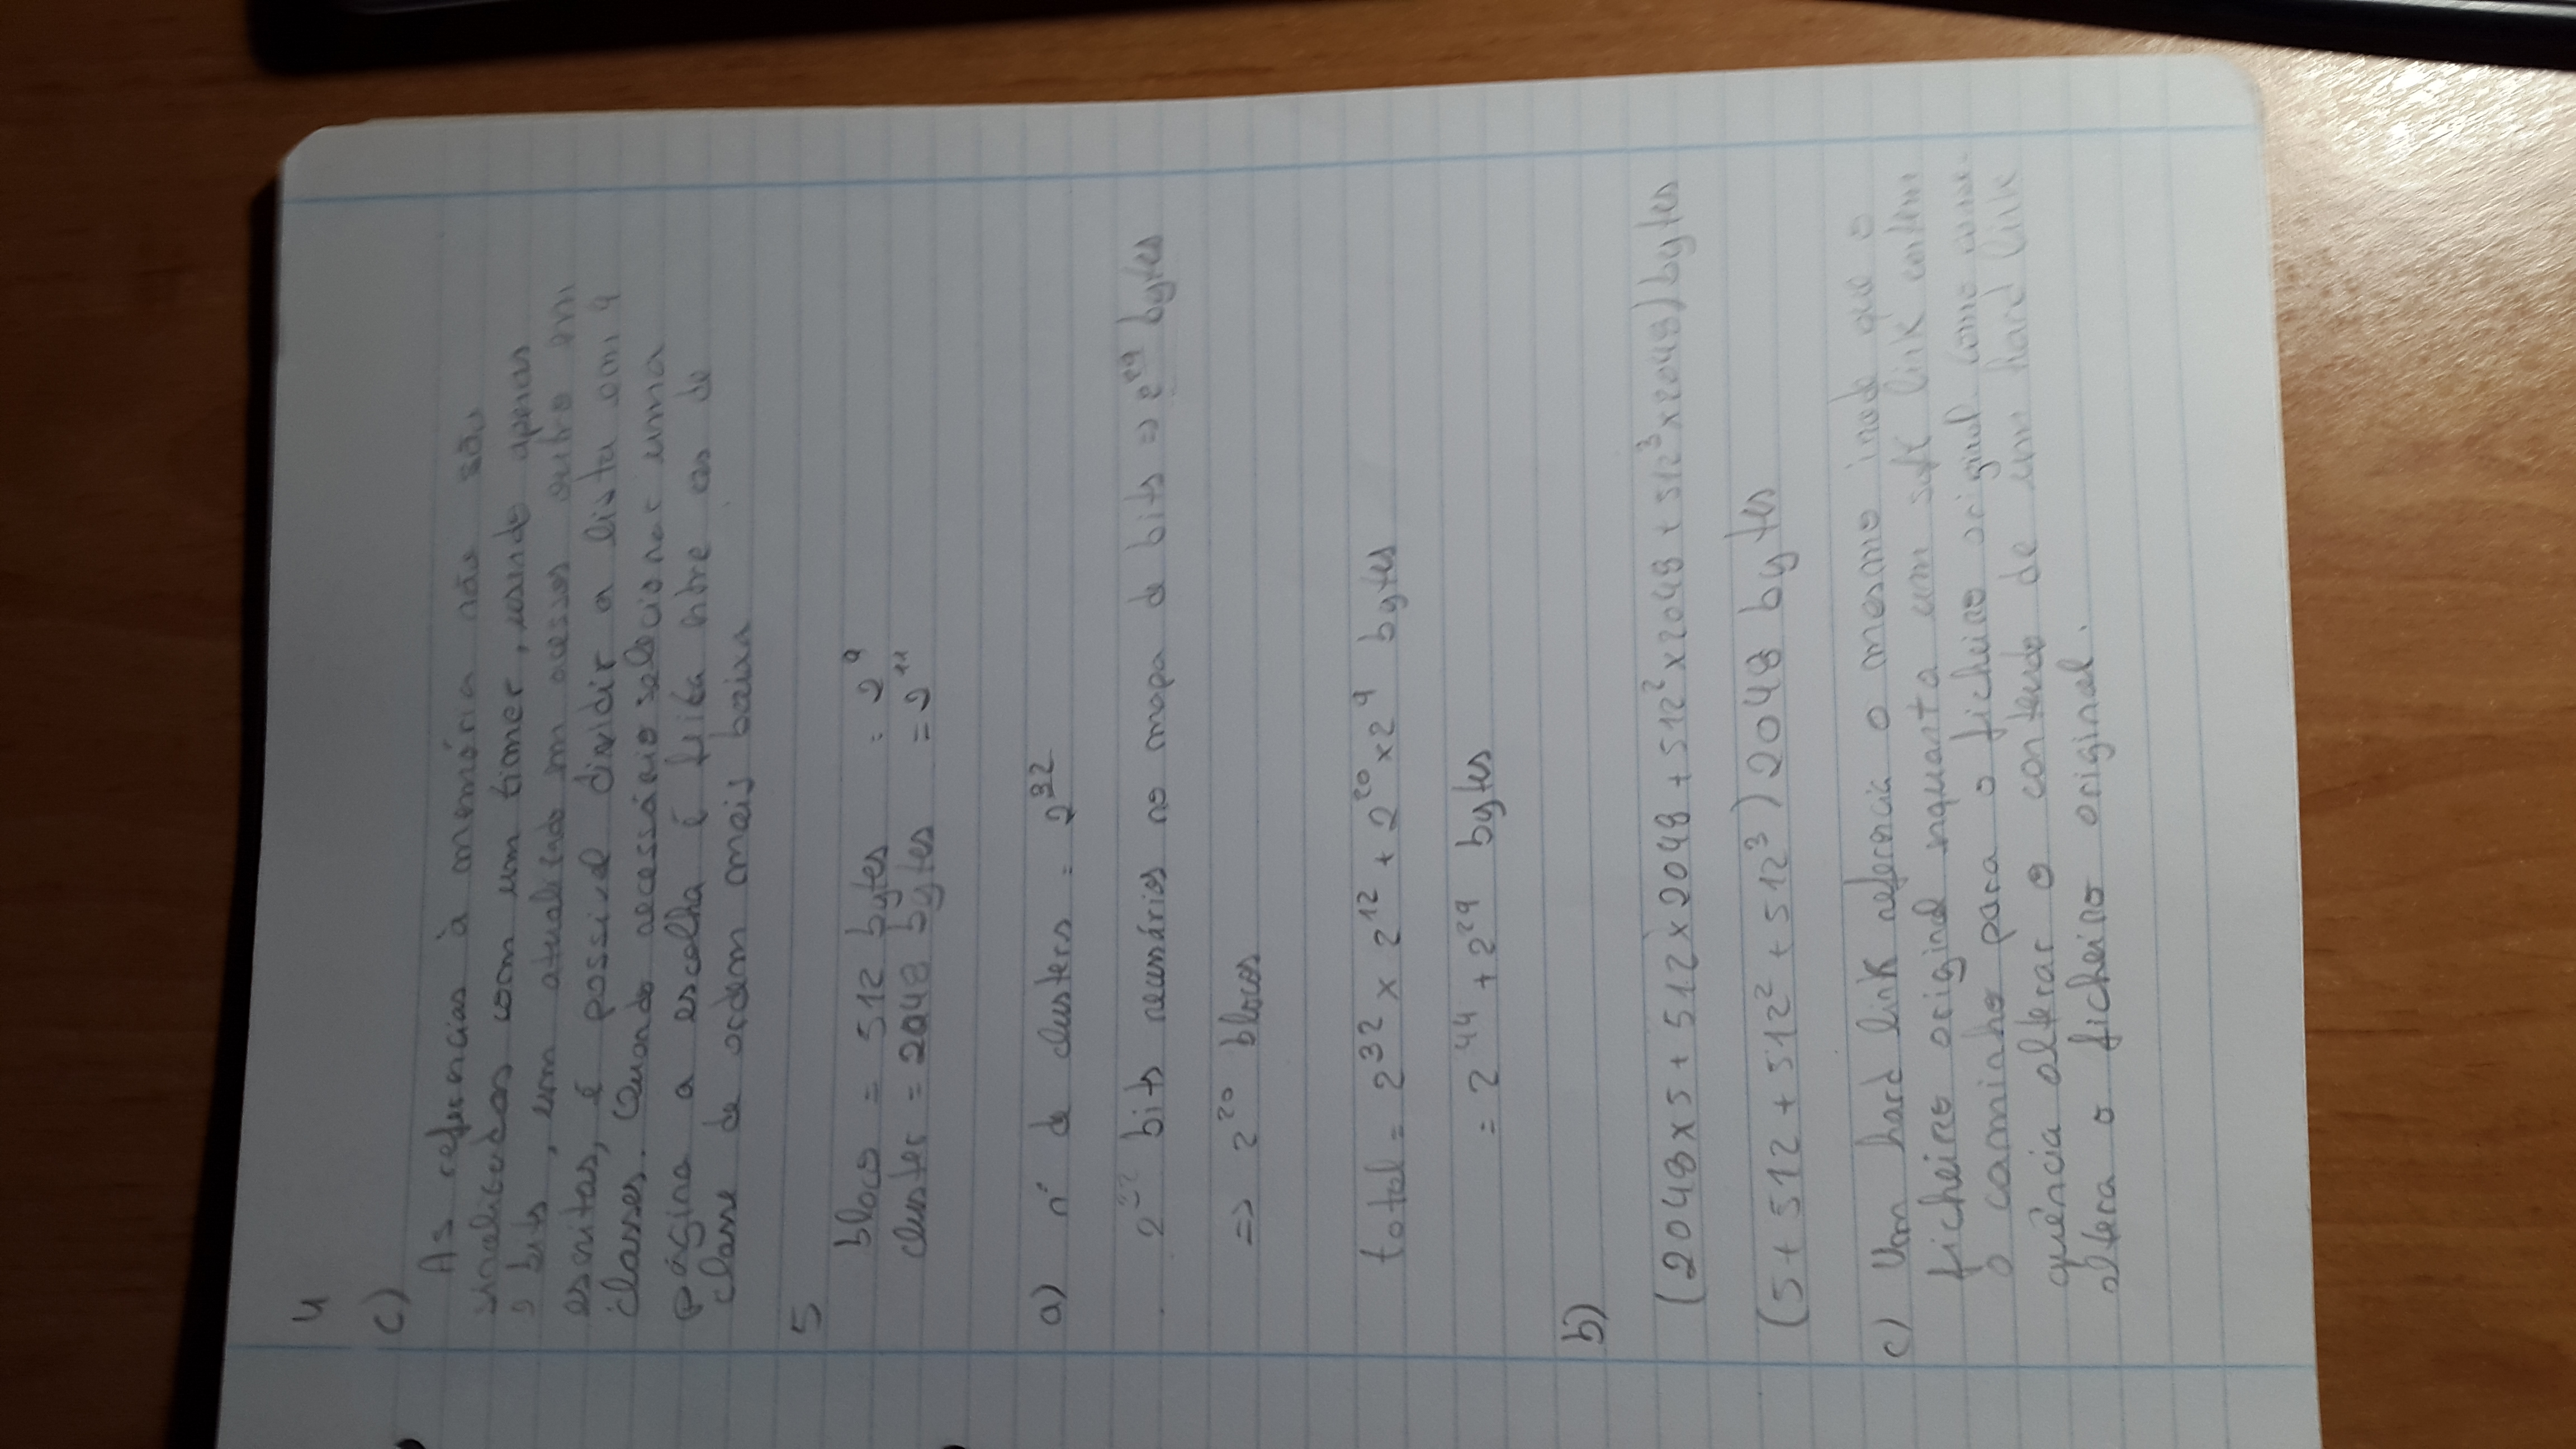 4
c)
As referencias à memória não são
sinalizadas com um timer, usando apenas
2 bits, um atualizado em acessos outro em
escritas, é possivel dividir a lista em 4
classes. Quando necessário selecionar uma
página a escolha é feita entre as de
classe de ordem mais baixa
5
bloco = 512 bytes = 2⁹
cluster = 2048 bytes = 2¹¹
a) nº de clusters = 2³²
2³² bits necessários no mapa de bits => 2²⁹ bytes
=> 2²⁰ blocos
total = 2³² x 2¹² + 2²⁰ x 2⁹ bytes
= 2⁴⁴ + 2²⁹ bytes
b)
(2048 x 5 + 512 x 2048 + 512² x 2048 + 512³ x 2048) bytes
(5 + 512 + 512² + 512³) 2048 bytes
c) Um hard link referencia o mesmo inode que o
ficheiro original enquanto um soft link contem
o caminho para o ficheiro original. Como conse-
quência alterar o conteudo de um hard link
altera o ficheiro original.